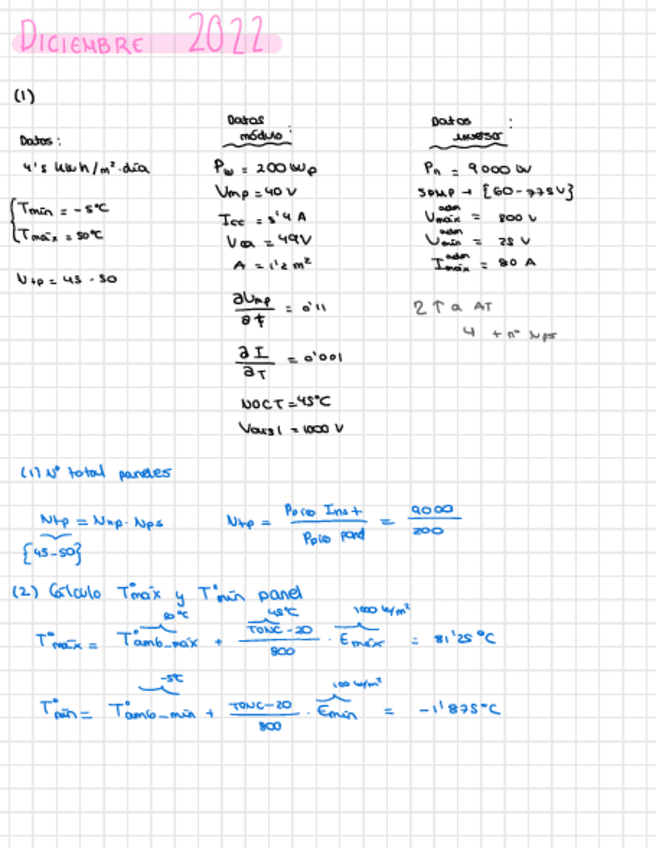 DICIEMBRE 2022
(1)
Datos:
4'5 kWh/m².día
Tmín = -5°C
Tmáx = 50°C
Ntp = 45 - 50
Datos módulo:
Pω = 200 Wp
Vmp = 40 V
Icc = 5'4 A
Vca = 49V
A = 1'2 m²
∂Vmp/∂t = 0'11
∂I/∂T = 0'001
NOCT = 45°C
Datos inversor:
Pn = 9000 W
SPMP → [60-775V]
Vmáx adm = 800 V
Vmín adm = 25 V
Imáx adm = 80 A
2 ↑ a AT
4 + nº Nps
(1) Nº total paneles
Ntp = Nnp. Nps
{45-50}
Ntp = Ppico Inst / Ppico panel = 9000 / 200
(2) Cálculo T°máx y T°mín panel
50°C 45°C 1000 W/m²
T°máx = T°amb_máx + TONC-20 / 800 · Emáx = 81'25°C
-5°C 100 W/m²
T°mín = T°amb_mín + TONC-20 / 800 · Emín = -1'875°C